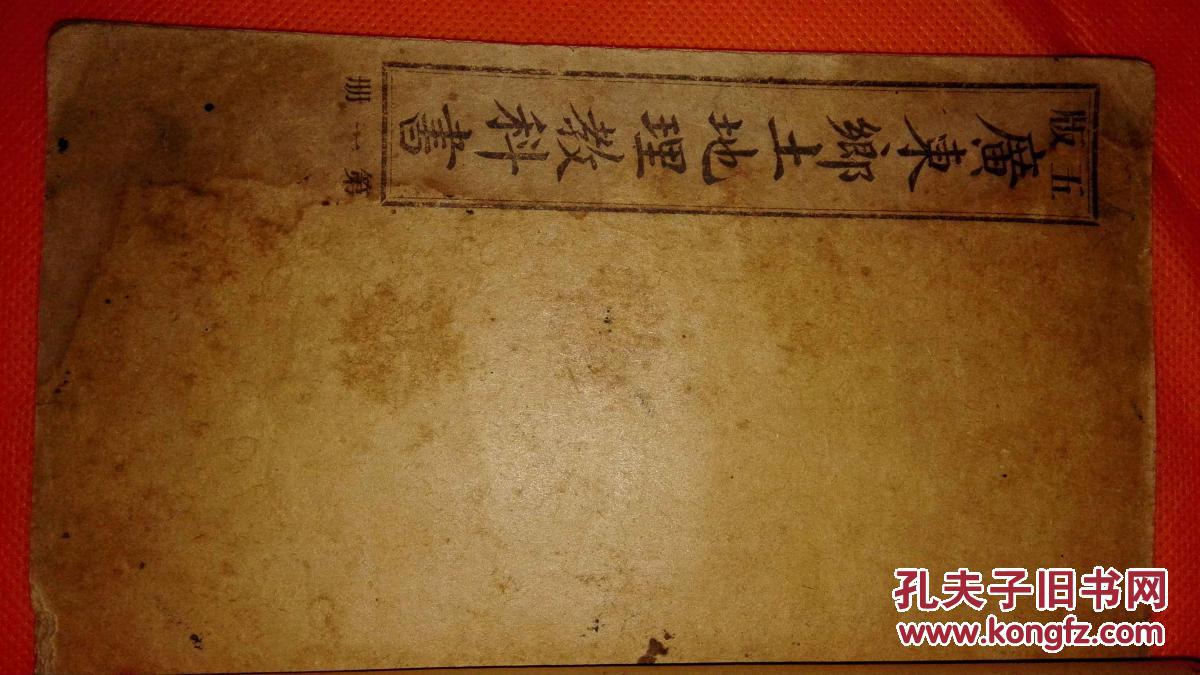 五版
廣東鄉土地理教科書
第 冊
孔夫子旧书网
www.kongfz.com